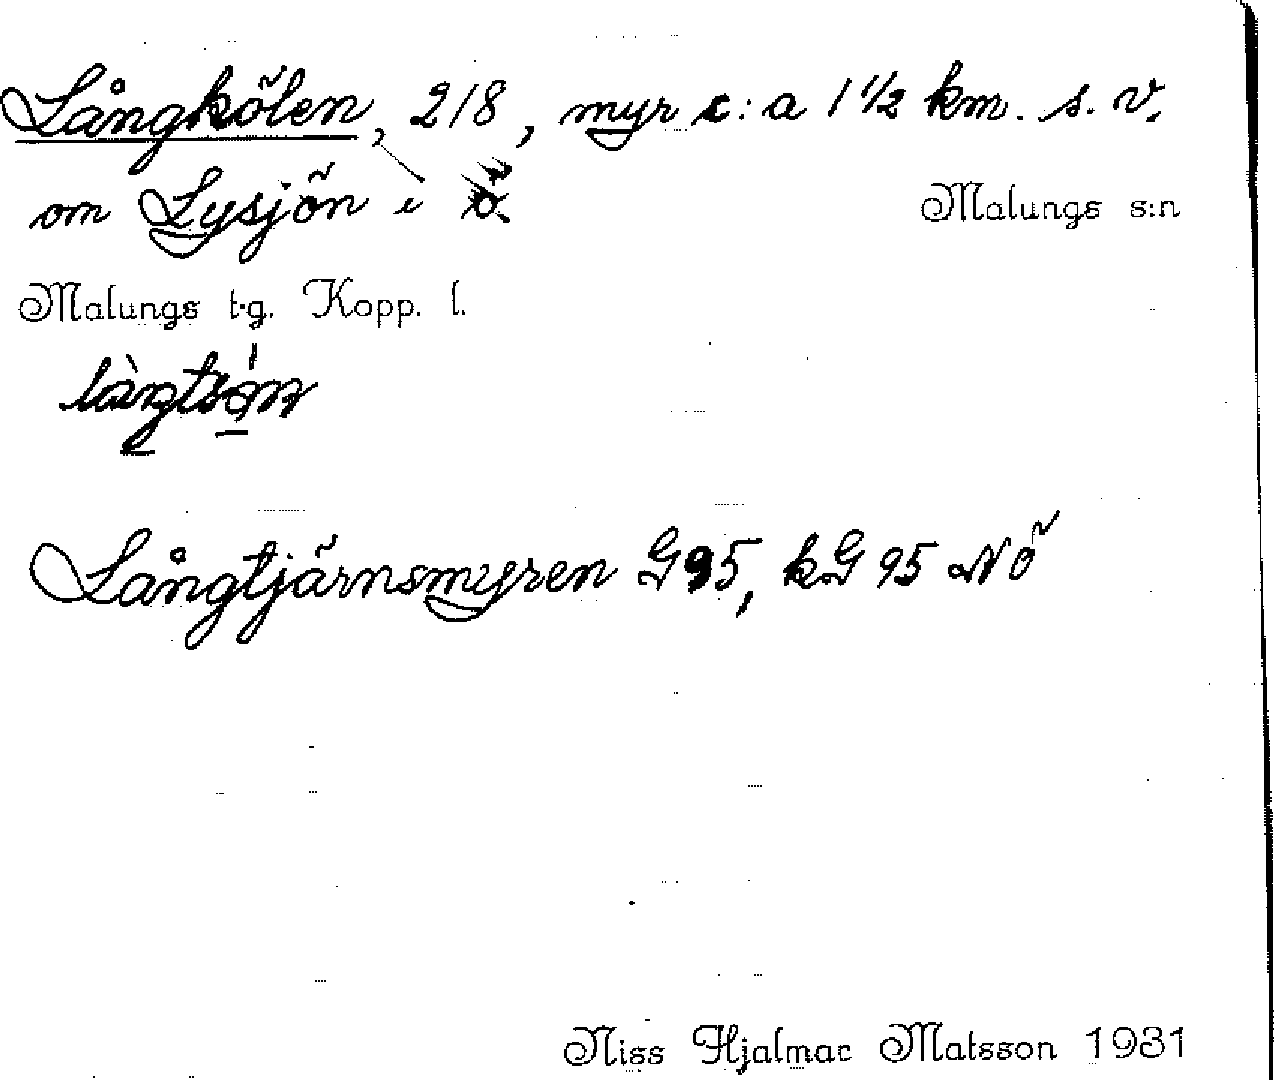 Långkölen, 218, myr c:a 1 1/2 km. s.v.
om Lysjön i Ö.
Malungs s:n
Malungs t-g. Kopp. l.
Långtjärnsmyren G95, kG 95 NÖ
Niss Hjalmar Matsson 1931